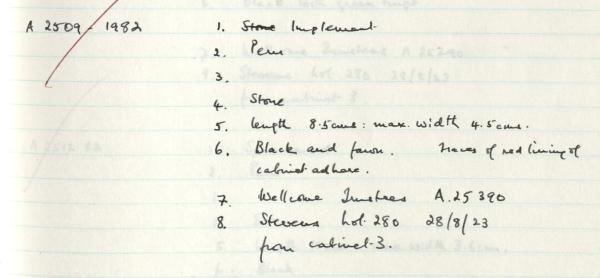 A 2509 - 1982 1. Stone Implement
2. Peru
3.
4. Stone
5. length 8.5cms: max. width 4.5cms.
6. Black and fawn. Traces of red lining of
cabinet adhere.
7. Wellcome Trustees A.25390
8. Stevens lot. 280 28/8/23
from cabinet 3.